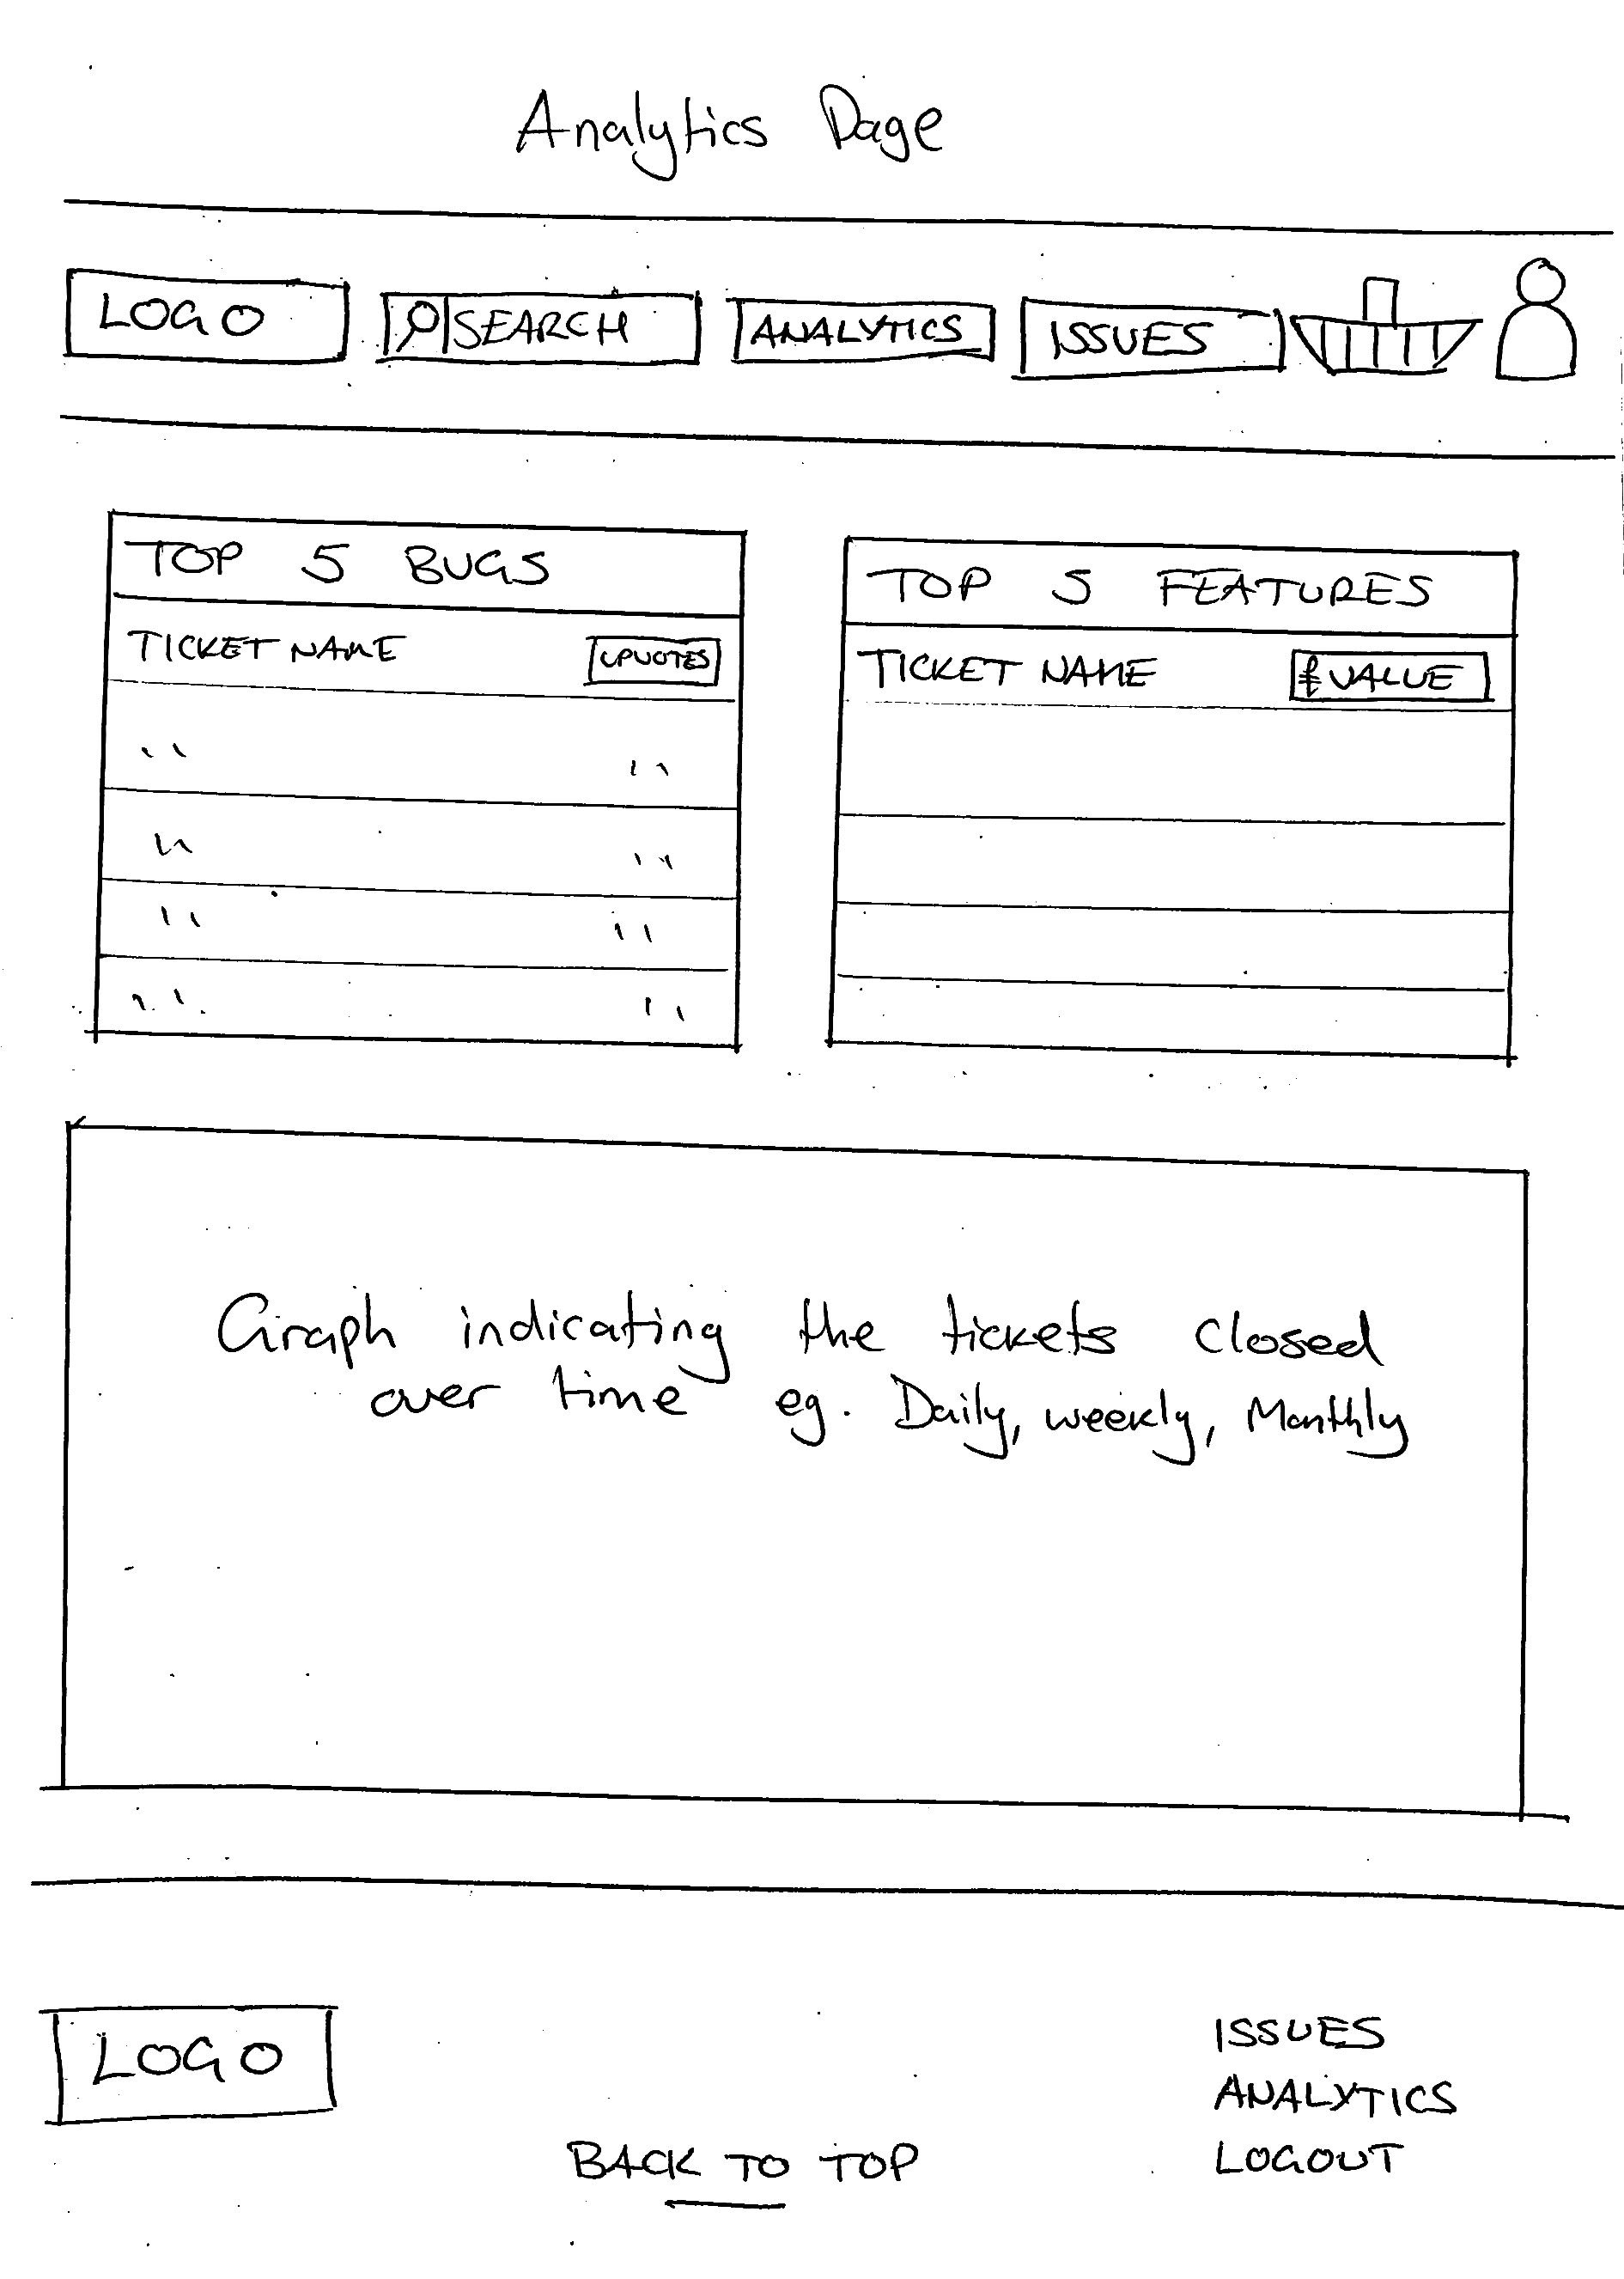 Analytics Page
LOGO SEARCH ANALYTICS ISSUES
TOP 5 BUGS
TICKET NAME UPVOTES
" "
" "
" "
" "
TOP 5 FEATURES
TICKET NAME £ VALUE
Graph indicating the tickets closed
over time eg. Daily, weekly, Monthly
LOGO
BACK TO TOP
ISSUES
ANALYTICS
LOGOUT